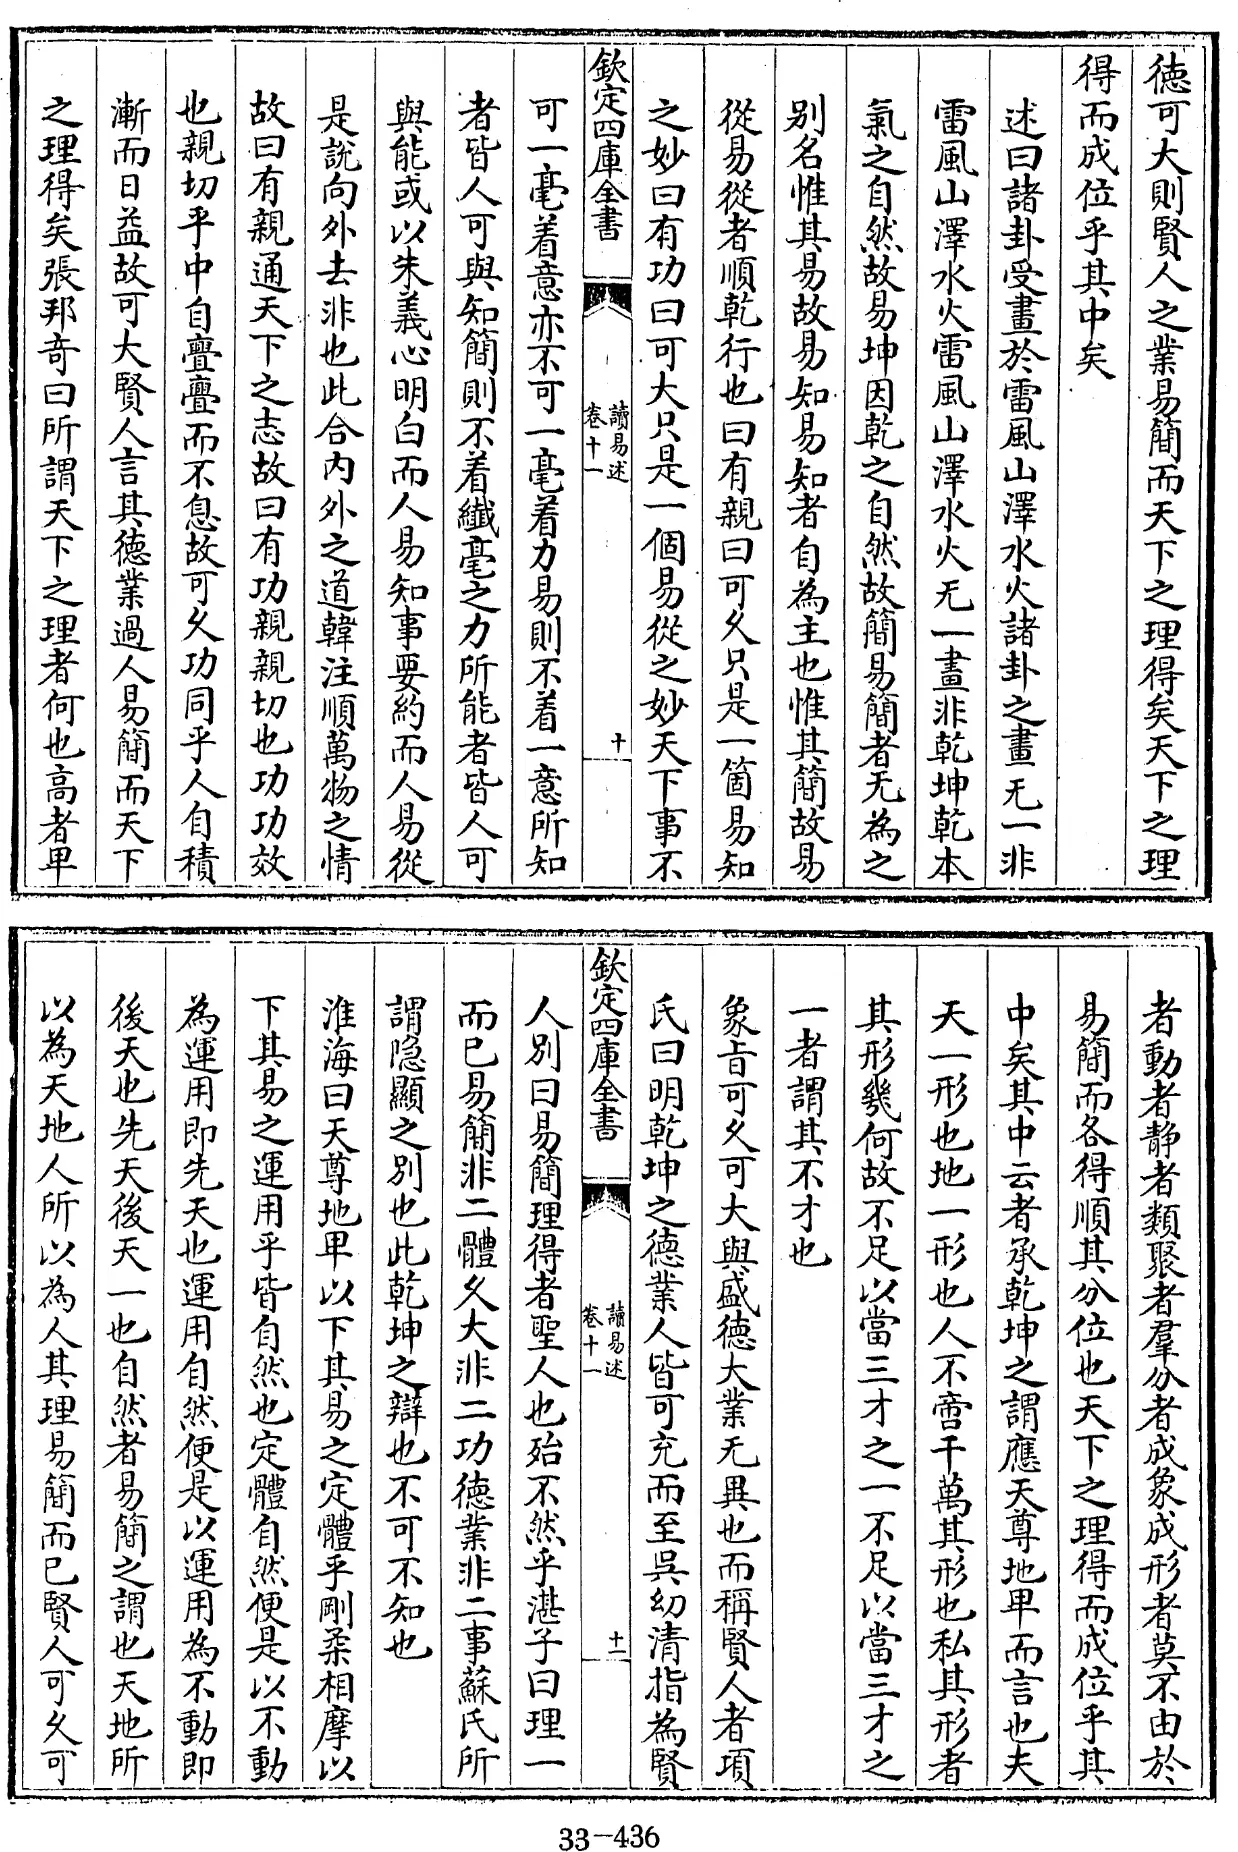 德可大則賢人之業易簡而天下之理得矣天下之理
得而成位乎其中矣
述曰諸卦受畫於雷風山澤水火諸卦之畫无一非
雷風山澤水火雷風山澤水火无一畫非乾坤乾本
氣之自然故易坤因乾之自然故簡易簡者无為之
别名惟其易故易知易知者自為主也惟其簡故易
從易從者順乾行也曰有親曰可久只是一箇易知
之妙曰有功曰可大只是一個易從之妙天下事不
欽定四庫全書
讀易述
卷十一
十
可一毫着意亦不可一毫着力易則不着一意所知
者皆人可與知簡則不着纖毫之力所能者皆人可
與能或以朱義心明白而人易知事要約而人易從
是說向外去非也此合内外之道韓注順萬物之情
故曰有親通天下之志故曰有功親親切也功功效
也親切乎中自亹亹而不息故可久功同乎人自積
漸而日益故可大賢人言其德業過人易簡而天下
之理得矣張邦奇曰所謂天下之理者何也高者卑
者動者静者類聚者羣分者成象成形者莫不由於
易簡而各得順其分位也天下之理得而成位乎其
中矣其中云者承乾坤之謂應天尊地卑而言也夫
天一形也地一形也人不啻千萬其形也私其形者
其形幾何故不足以當三才之一不足以當三才之
一者謂其不才也
象旨可久可大與盛德大業无異也而稱賢人者項
氏曰明乾坤之德業人皆可充而至吳幼清指為賢
欽定四庫全書
讀易述
卷十一
十一
人别曰易簡理得者聖人也殆不然乎湛子曰理一
而已易簡非二體久大非二功德業非二事蘇氏所
謂隐顯之别也此乾坤之辯也不可不知也
淮海曰天尊地卑以下其易之定體乎剛柔相摩以
下其易之運用乎皆自然也定體自然便是以不動
為運用即先天也運用自然便是以運用為不動即
後天也先天後天一也自然者易簡之謂也天地所
以為天地人所以為人其理易簡而已賢人可久可
33-436